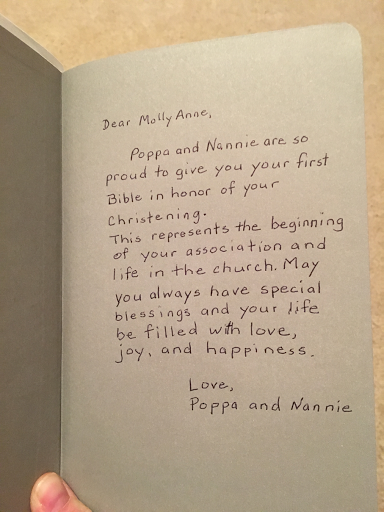 Dear Molly Anne,
Poppa and Nannie are so
proud to give you your first
Bible in honor of your
christening.
This represents the beginning
of your association and
life in the church. May
you always have special
blessings and your life
be filled with love,
joy, and happiness.
Love,
Poppa and Nannie